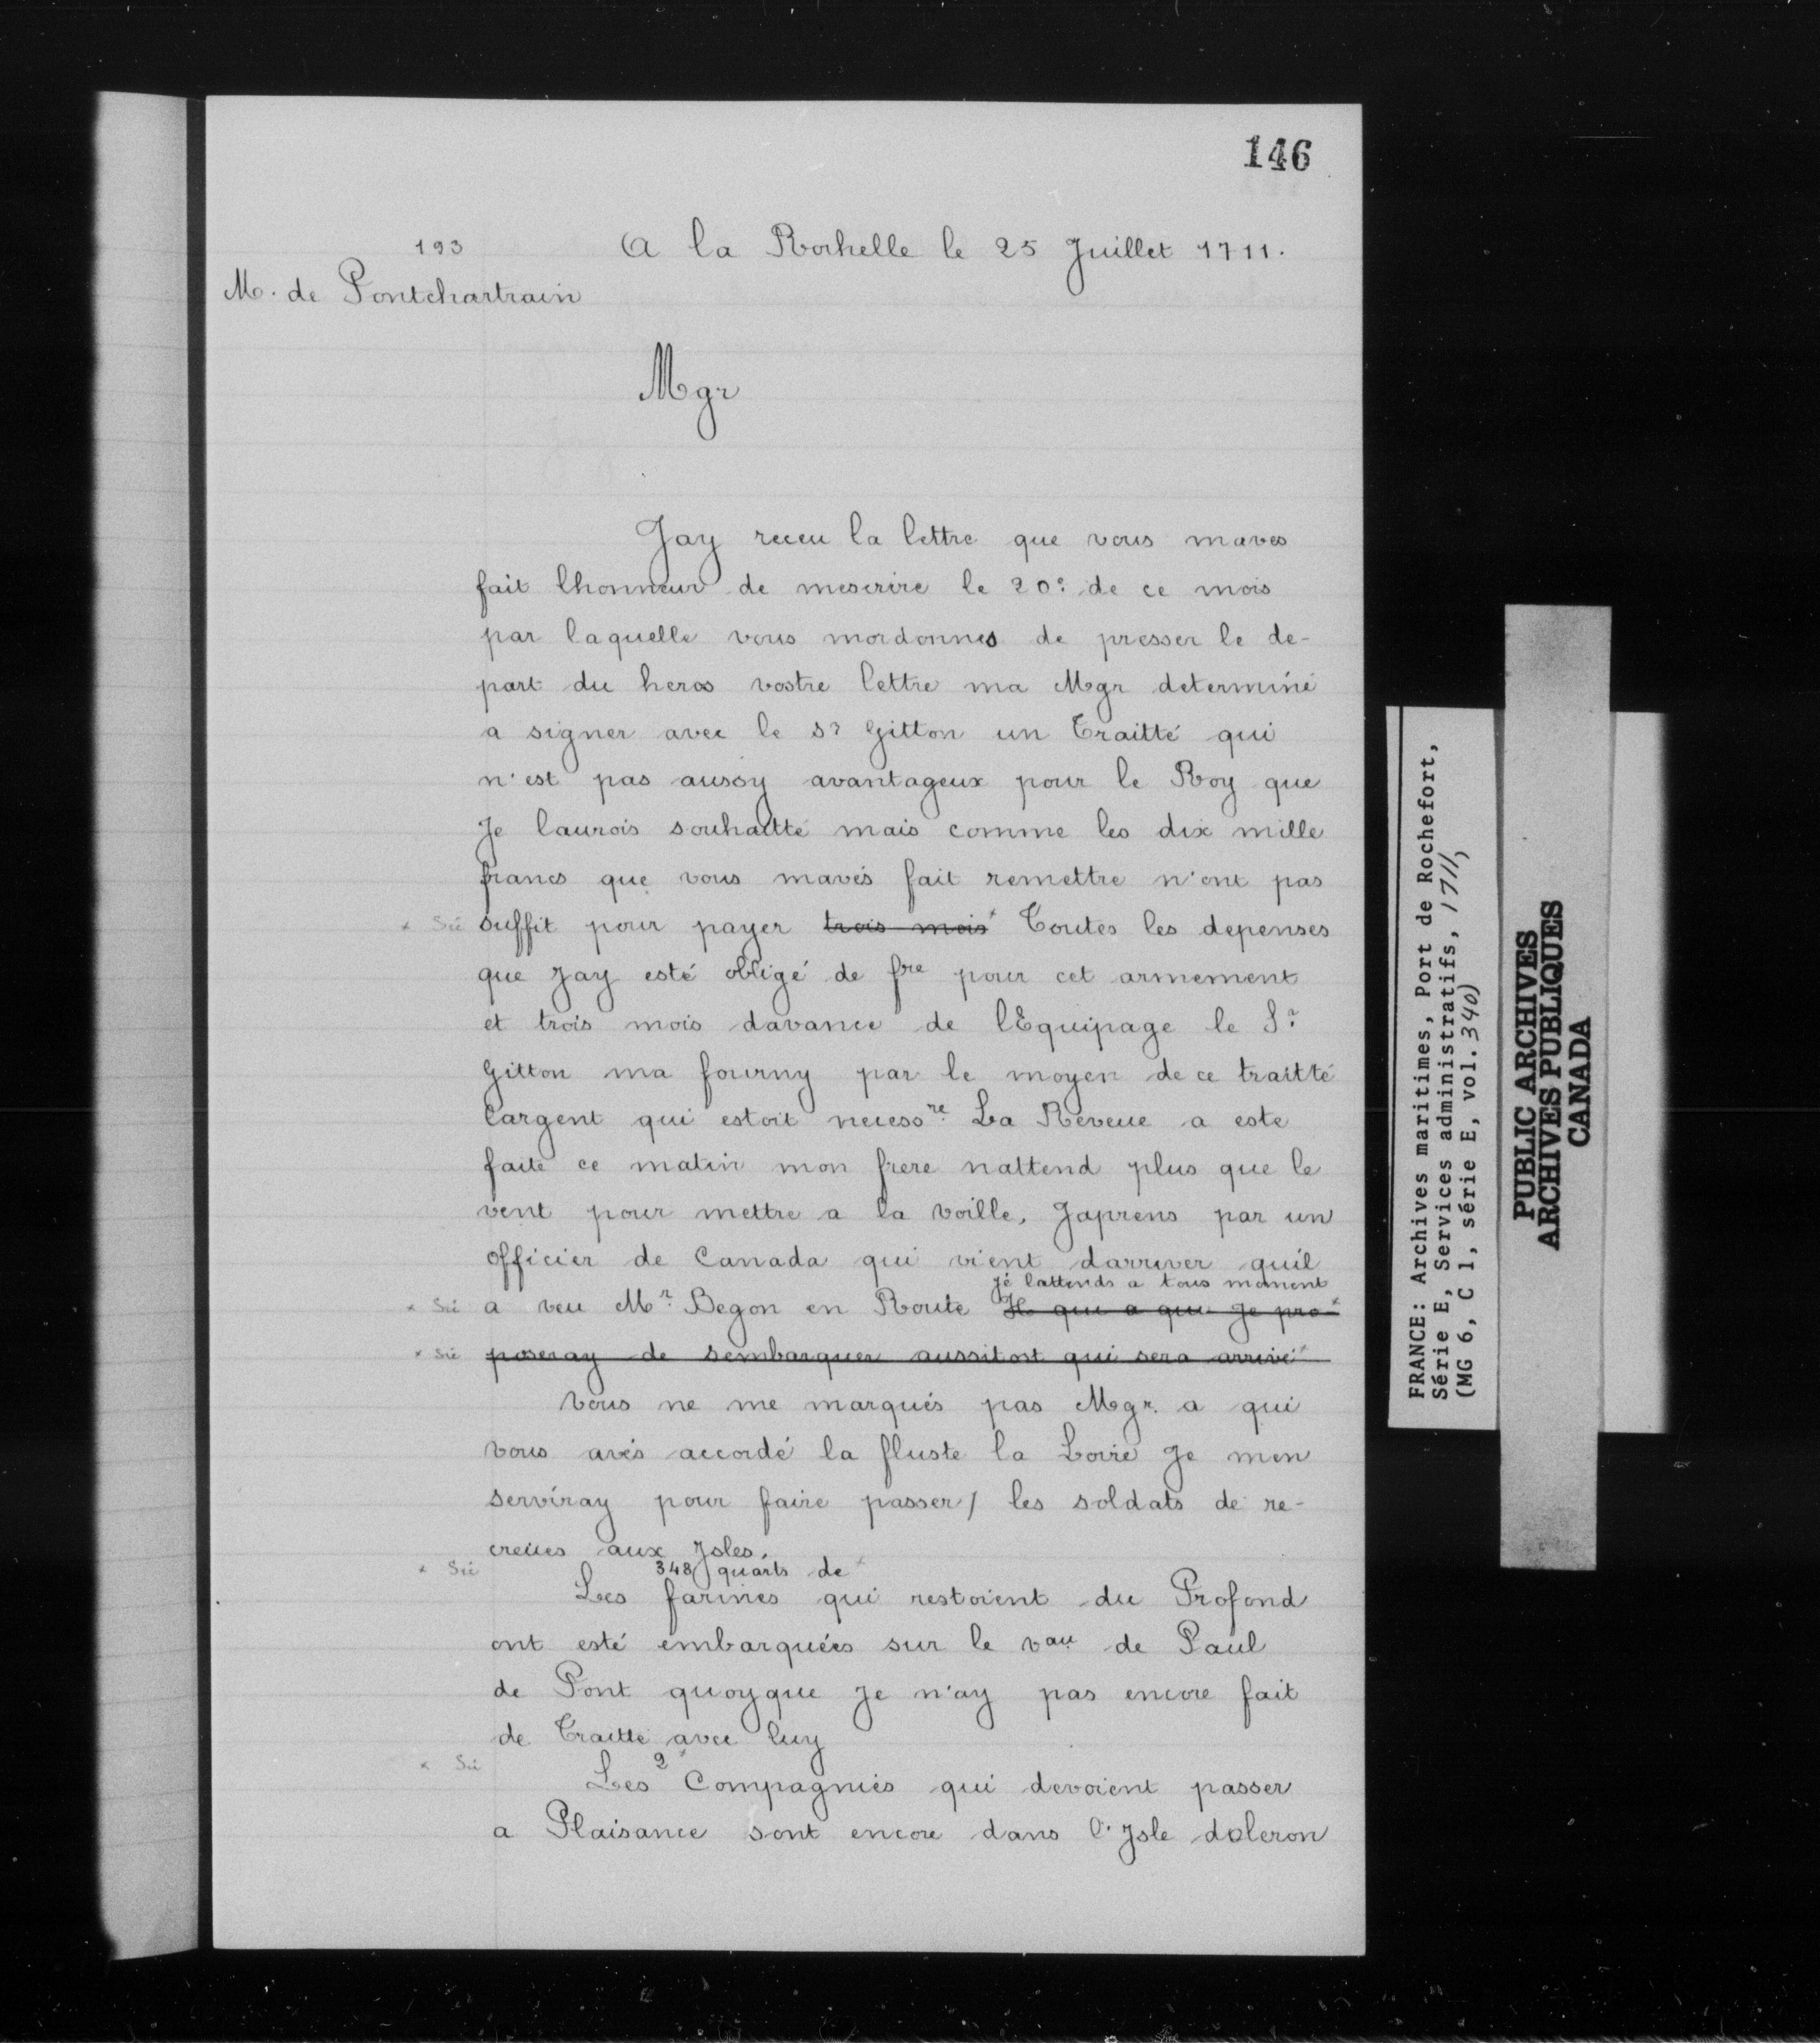 146
193
A la Rochelle le 25 Juillet 1711.
M. de Pontchartrain
Mgr
Jay receu la lettre que vous maves
fait lhonneur de mescrire le 20e de ce mois
par laquelle vous mordonnes de presser le de-
part du heros vostre lettre ma Mgr determiné
a signer avec le Sr Gitton un Traitté qui
n'est pas aussy avantageux pour le Roy que
Je laurois souhaitté mais comme les dix mille
francs que vous mavés fait remettre n'ont pas
* Sic suffit pour payer trois mois* Toutes les depenses
que Jay esté obligé de fre pour cet armement
et trois mois davance de lEquipage le Sr
Gitton ma fourny par le moyen de ce traitté
Largent qui estoit necessre La Reveue a este
faite ce matin mon frere nattend plus que le
vent pour mettre a la voille, Japrens par un
officier de Canada qui vient darriver quil
je lattends a tous moment
* Sic a veu Mr Begon en Route Il qui a qui Je pro*
* Sic poseray de sembarquer aussitost qui sera arrivé*
Vous ne me marqués pas Mgr. a qui
vous avés accordé la fluste la Loire Je men
serviray pour faire passer/ les soldats de re-
creües aux Isles.
* Sic 348 quarts de*
Les farines qui restoient du Profond
ont esté embarquées sur le vau de Paul
de Pont quoyque Je n'ay pas encore fait
de Traitte avec luy
* Sic
Les 2* Compagnies qui devoient passer
a Plaisance sont encore dans l'Isle doleron
FRANCE: Archives maritimes, Port de Rochefort,
Série E, Services administratifs, 1711,
(MG 6, C 1, série E, vol. 340)
PUBLIC ARCHIVES
ARCHIVES PUBLIQUES
CANADA